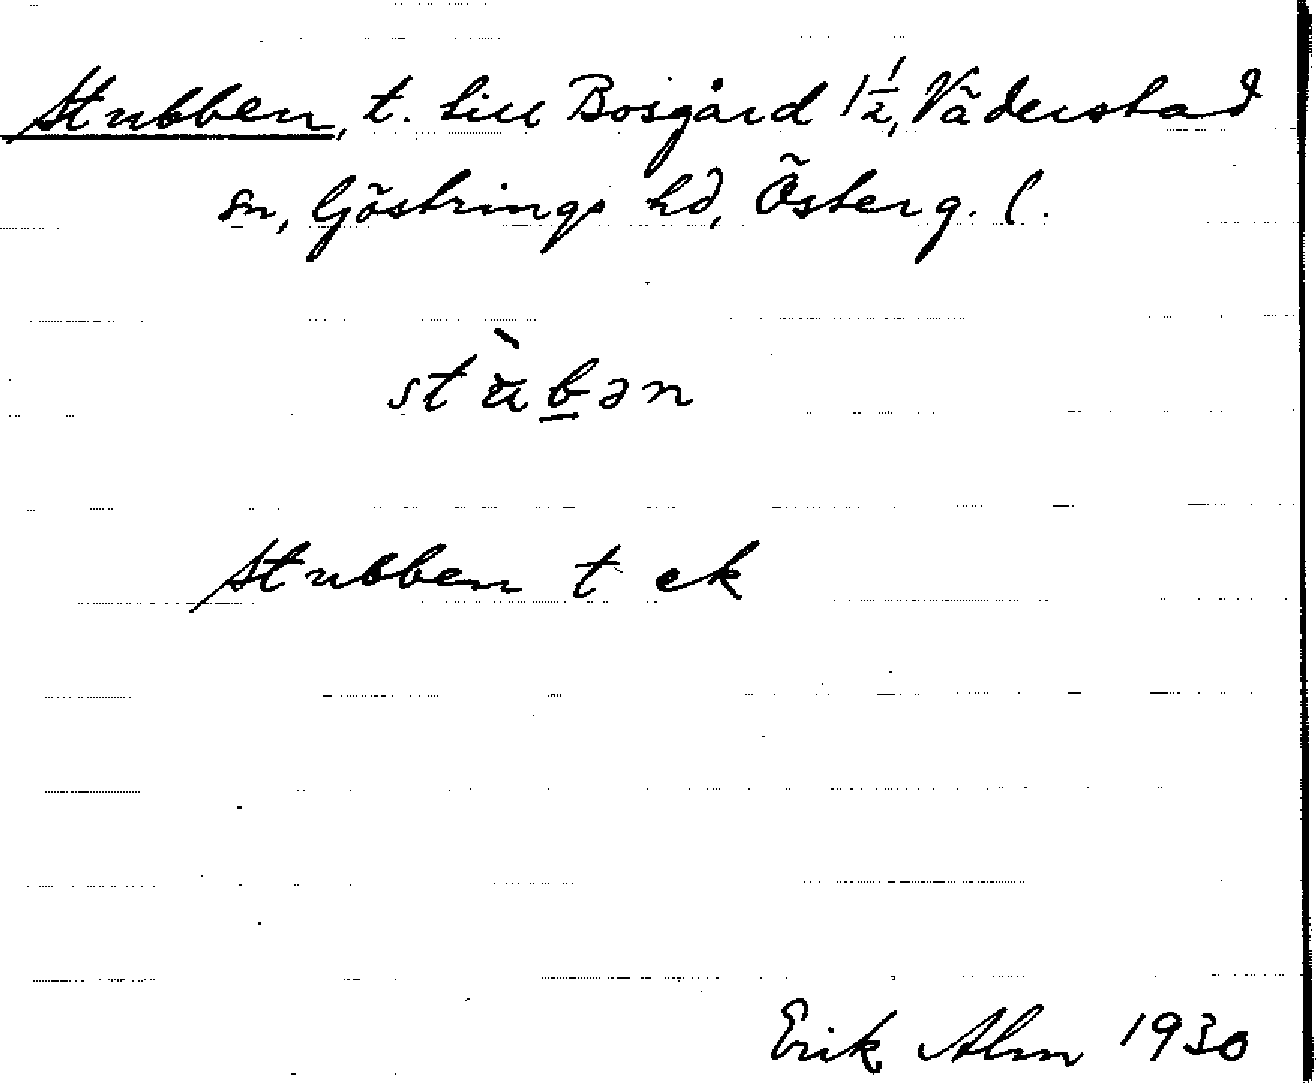 Stubben, t. till Bosgård 1½, Väderstad
sn, Göstrings hd, Österg. l.
stu̇̀b̲ən
Stubben t ek
Erik Alm 1930